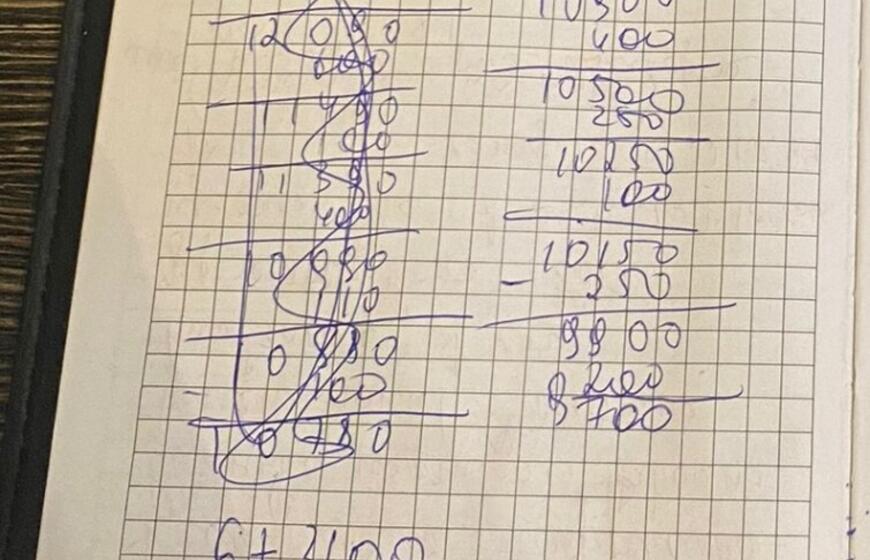 12090
600
11490
100
11390
400
10990
110
10880
- 100
10780
10900
400
10500
250
10250
100
10150
- 250
9900
200
9700